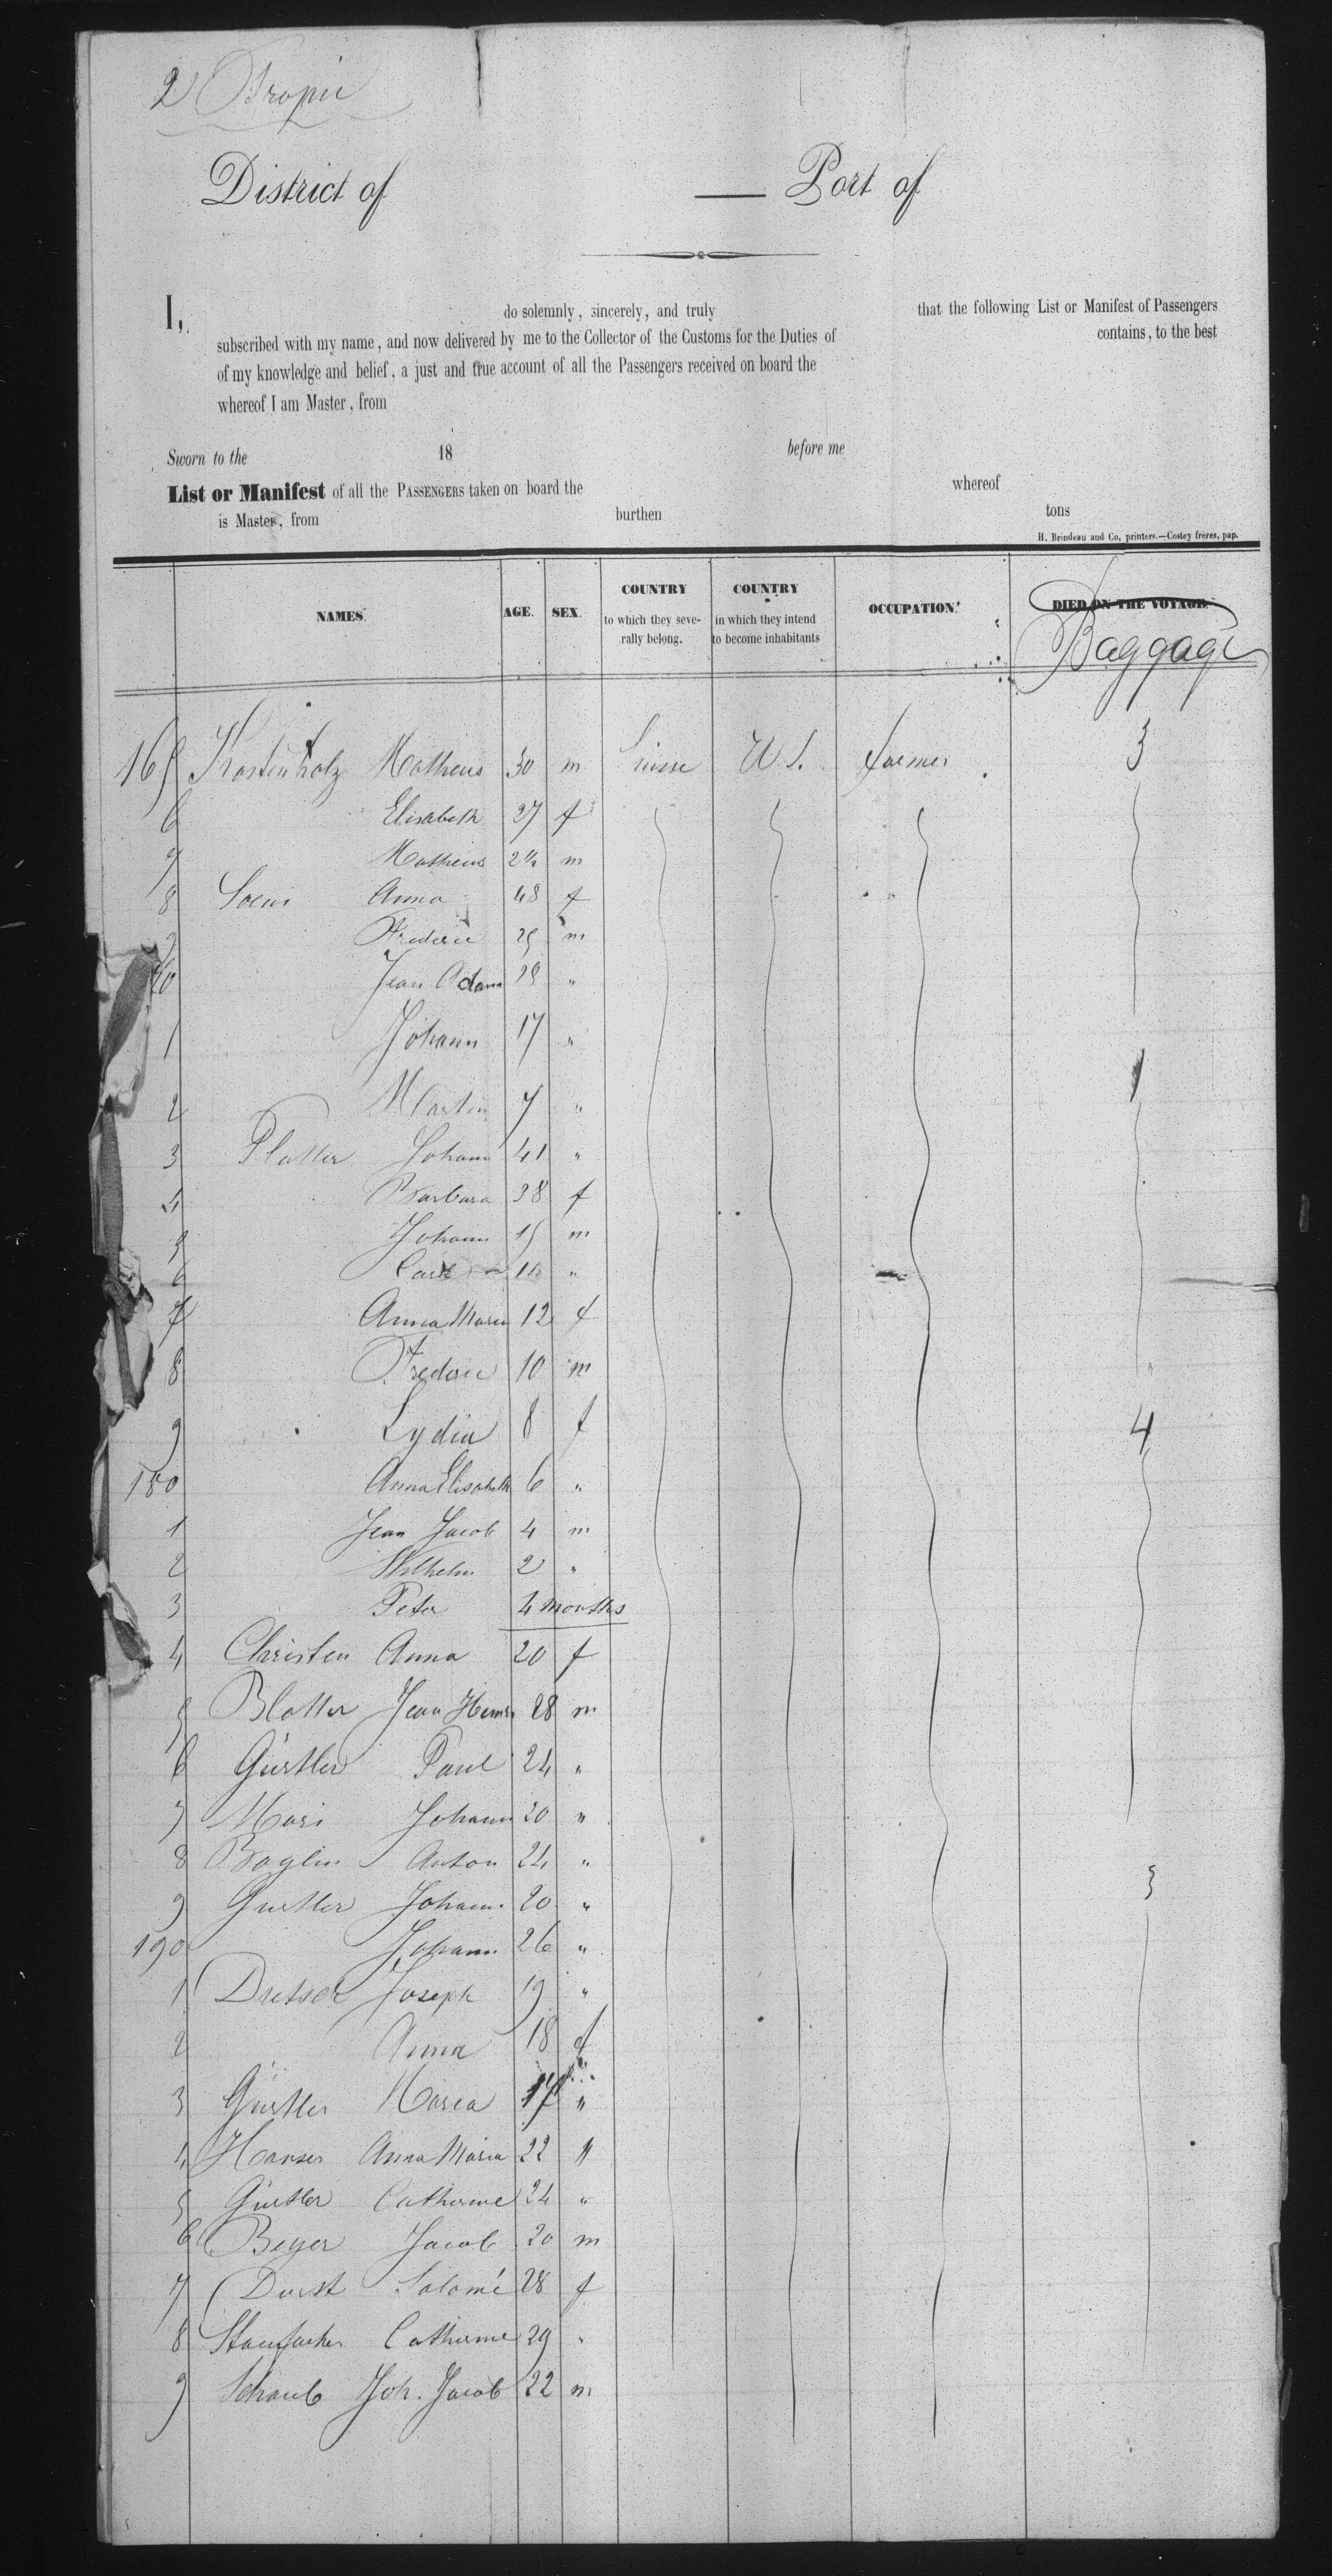 2 Tropic
District of — Port of
I, do solemnly, sincerely, and truly that the following List or Manifest of Passengers
subscribed with my name, and now delivered by me to the Collector of the Customs for the Duties of contains, to the best
of my knowledge and belief, a just and true account of all the Passengers received on board the
whereof I am Master, from
Sworn to the 18 before me
List or Manifest of all the PASSENGERS taken on board the whereof
is Master, from burthen tons
H. Brindeau and Co, printers.—Costey frères, pap.
NAMES. AGE. SEX. COUNTRY to which they seve- rally belong. COUNTRY in which they intend to become inhabitants OCCUPATION. DIED ON THE VOYAGE.
Baggage
165 Kostenholz Matheus 30 m Suisse U S. farmer 3
6 Elisabeth 27 f
7 Matheus 2½ m
8 Socin Anna 48 f
9 Frederic 25 m
70 Jean Adam "
1 Johann 17 "
2 Martin 7 " 1
3 Platter Johann 41 "
4 Barbara 38 f
5 Johann 15 m
6 Carl "
7 Anna Maria 12 f
8 Frederic 10 m
9 Lydia 8 f 4
180 Anna Elisabeth 6 "
1 Jean Jacob 4 m
2 Wilhelm 2 "
3 Peter 4 months
4 Christen Anna 20 f
5 Blatter Jean Henri 28 m
6 Gürtler Paul 24 "
7 Mari Johann 20 "
8 Boglin Anton 24 "
9 Gürtler Johann 20 " 3
190 Johann 26 "
1 Dietsch Joseph 19 "
2 Anna 18 f
3 Gürtler Maria 17 "
4 Hanser Anna Maria 22 "
5 Gürtler Catherine 24 "
6 Beyer Jacob 20 m
7 Durst Salomé 28 f
8 Staufacher Catherine 29 "
9 Schaub Joh. Jacob 22 m